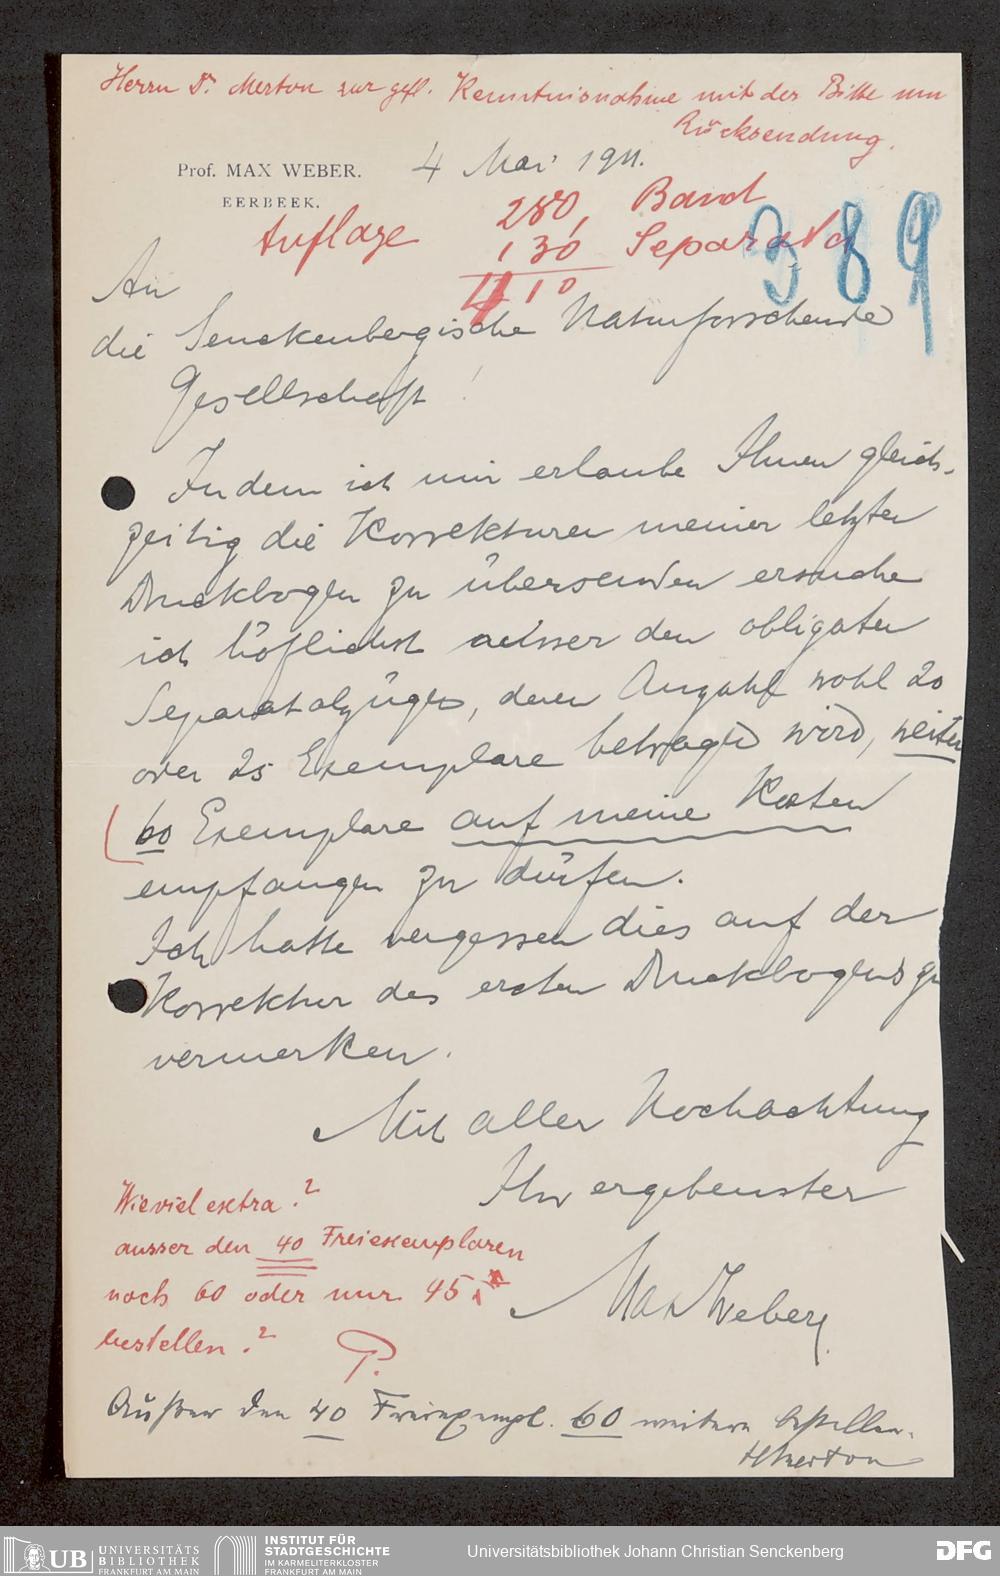 Herrn Dr. Merton zur gefl. Kenntnisnahme mit der Bitte um
Rücksendung.
Prof. MAX WEBER.
EERBEEK.
4 Mai 1911.
Auflage 280, Band
130 Separata
410
389
An
die Senckenbergische Naturforschende
Gesellschaft!
Indem ich mir erlaube Ihnen gleich-
zeitig die Korrekturen meiner letzten
Druckbogen zu übersenden ersuche
ich höflichst ausser den obligaten
Separatabzügen, deren Anzahl wohl 20
oder 25 Exemplare betragen wird, weiter
60 Exemplare auf meine Kosten
empfangen zu dürfen.
Ich hatte vergessen dies auf der
Korrektur des ersten Druckbogens zu
vermerken.
Mit aller Hochachtung
Ihr ergebenster
Max Weber.
Wieviel extra?
ausser den 40 Freiexemplaren
noch 60 oder nur 45
bestellen?
P.
Außer den 40 Freiexempl. 60 weitere bestellen.
HMerton
UB UNIVERSITÄTS
BIBLIOTHEK
FRANKFURT AM MAIN
INSTITUT FÜR
STADTGESCHICHTE
IM KARMELITERKLOSTER
FRANKFURT AM MAIN
Universitätsbibliothek Johann Christian Senckenberg
DFG